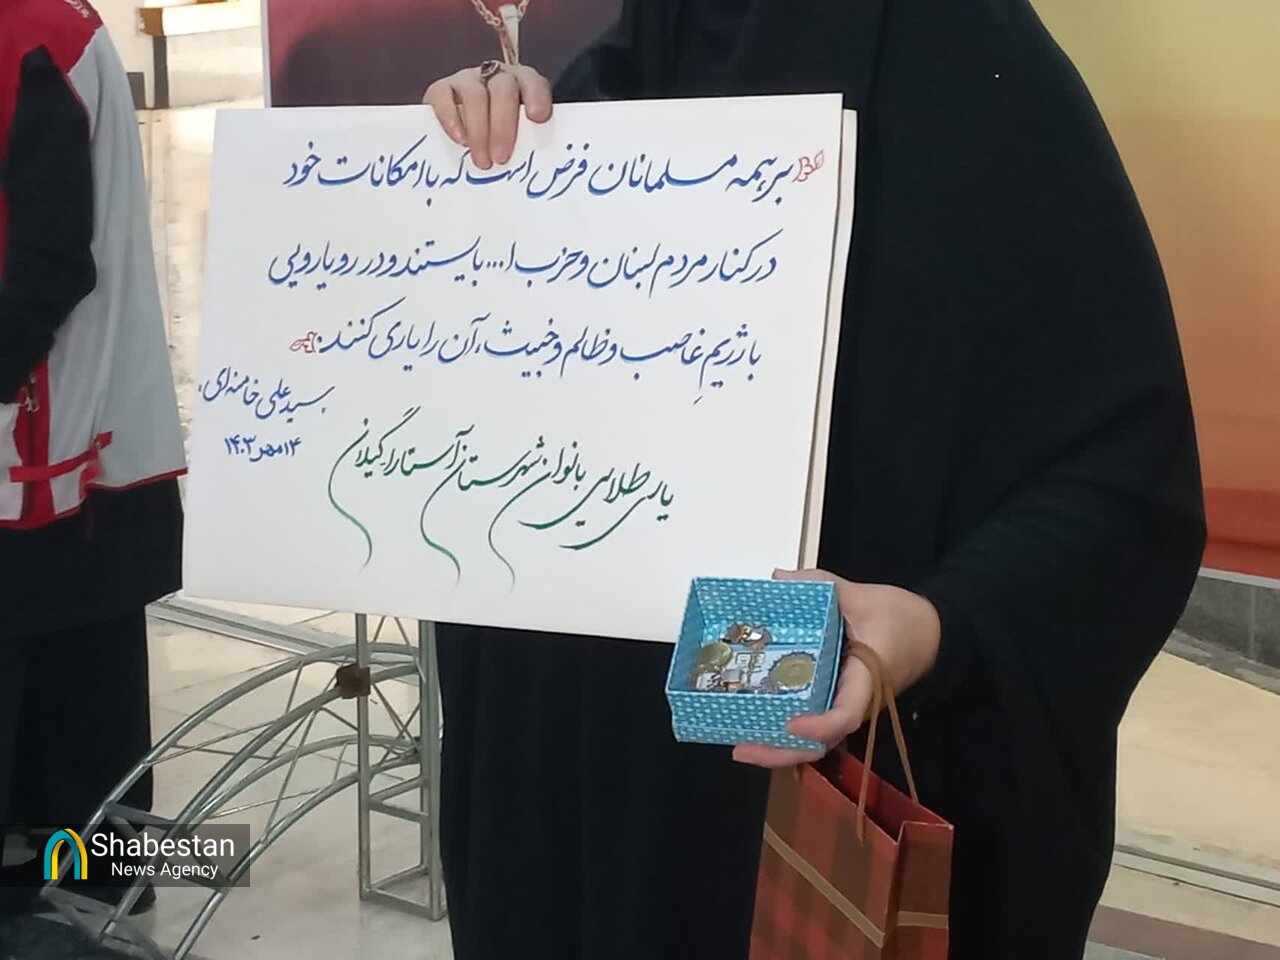 بر همه مسلمانان فرض است که با امکانات خود
در کنار مردم لبنان و حزب ا... بایستند و در رویارویی
با رژیمِ غاصب و ظالم و خبیث، آن را یاری کنند.
سید علی خامنه‌ای
۱۴ مهر ۱۴۰۳
یاری طلایی بانوان شهرستان آستارا_گیلان
Shabestan
News Agency